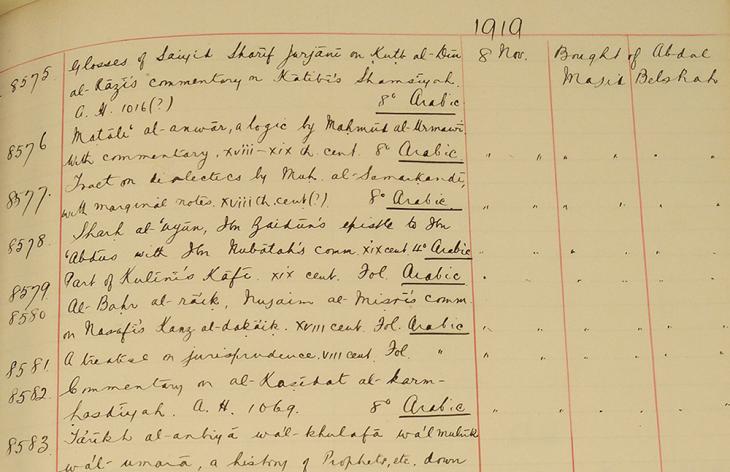 1919
8575 Glosses of Saiyid Sharif Jurjānī on Kutb al-Dīn 8 Nov. Bought of Abdul
al-Rāzī's commentary on Kātibī's Shamsīyah. Majid Belshah
A. H. 1016(?) 8° Arabic
8576 Matāli‘ al-anwār, a logic by Mahmūd al-Urmawī,
with commentary, xviii-xix th. cent. 8° Arabic. " " " " " "
8577. Tract on dialectics by Muh. al-Samarkandī,
with marginal notes. xviii th. cent(?). 8° Arabic. " " " " " "
8578. Sharh al-‘uyūn, Ibn Zaidūn's epistle to Ibn
‘Abdūs with Ibn Nubātah's comm. xix cent. 4° Arabic " " " " " "
8579 Part of Kulīnī's Kāfī. xix cent. Fol. Arabic " " " " " "
8580 Al-Bahr al-rāik, Nujaim al-Misrī's comm
on Nasafī's Kanz al-dakāik. xviii cent. Fol. Arabic " " " " " "
8581. A treatise on jurisprudence. viii cent. Fol. " " " " " " "
8582. Commentary on al-Kasīdat al-
hasdīyah. A. H. 1069. 8° Arabic " " " " " "
8583. Tārīkh al-anbiyā wa'l-khulafā wa'l mulūk
wa'l-umarā, a history of Prophets, etc. down